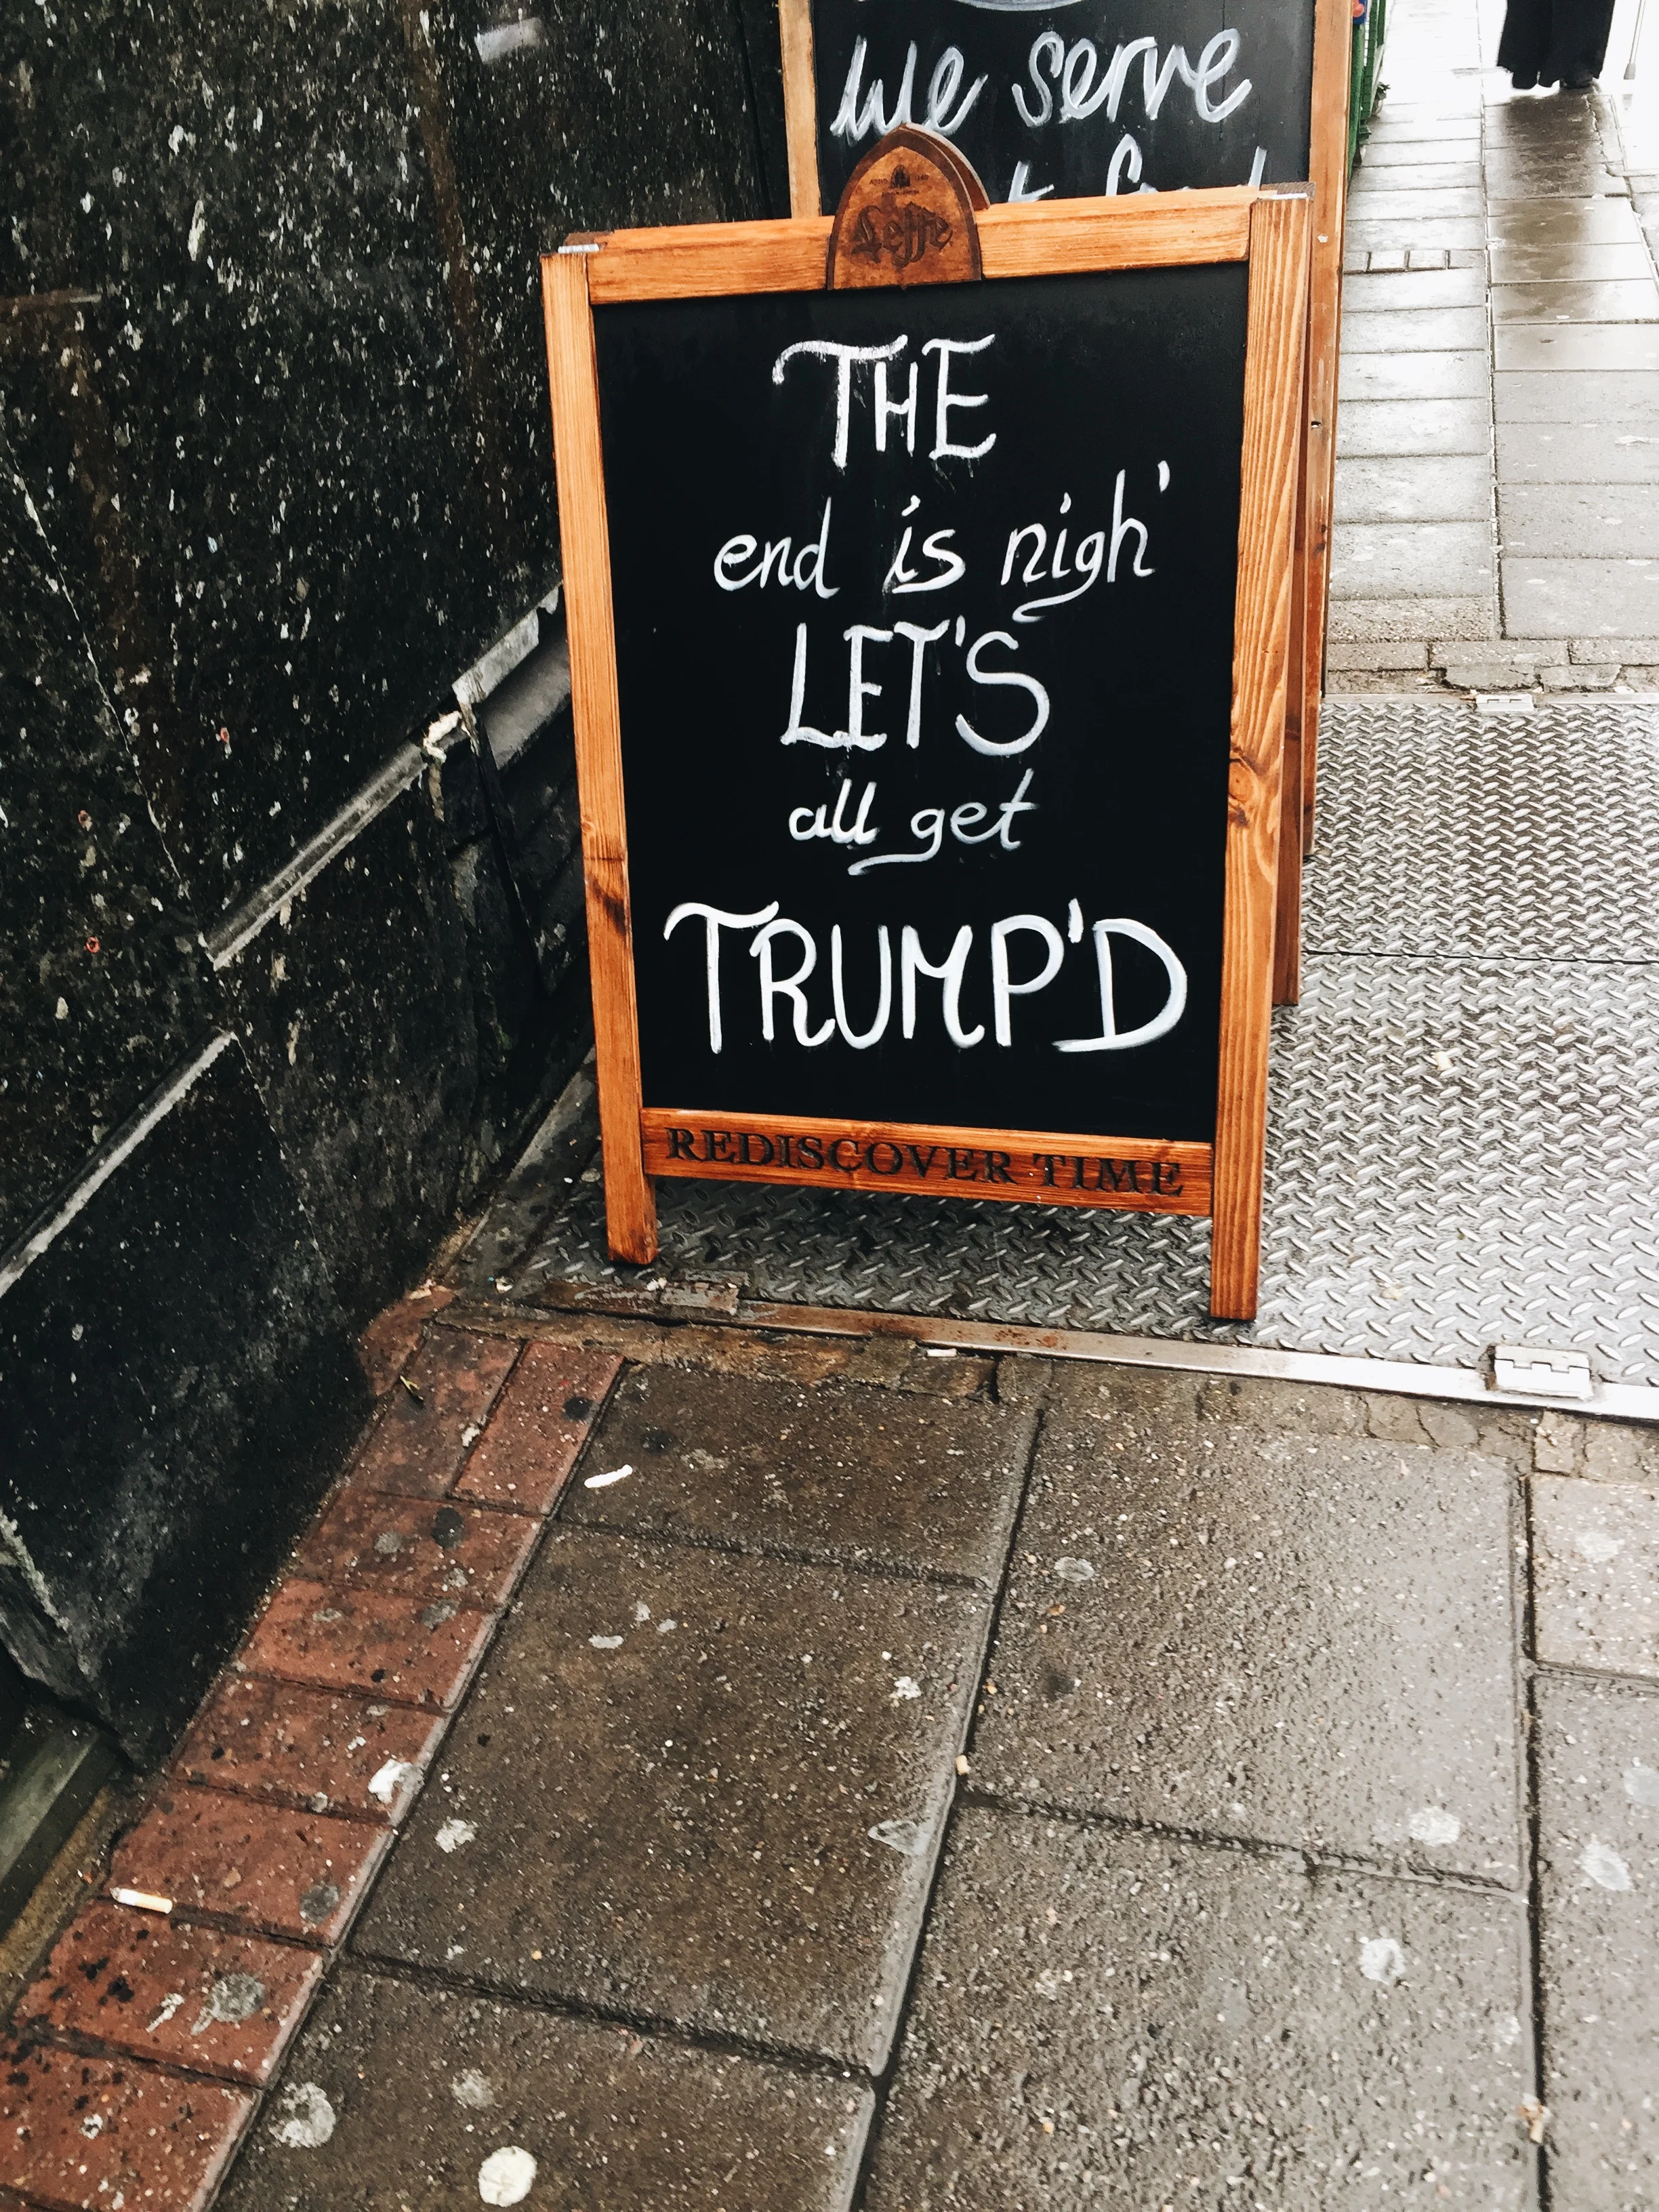 we serve
Leffe
THE
end is nigh'
LET'S
all get
TRUMP'D
REDISCOVER TIME